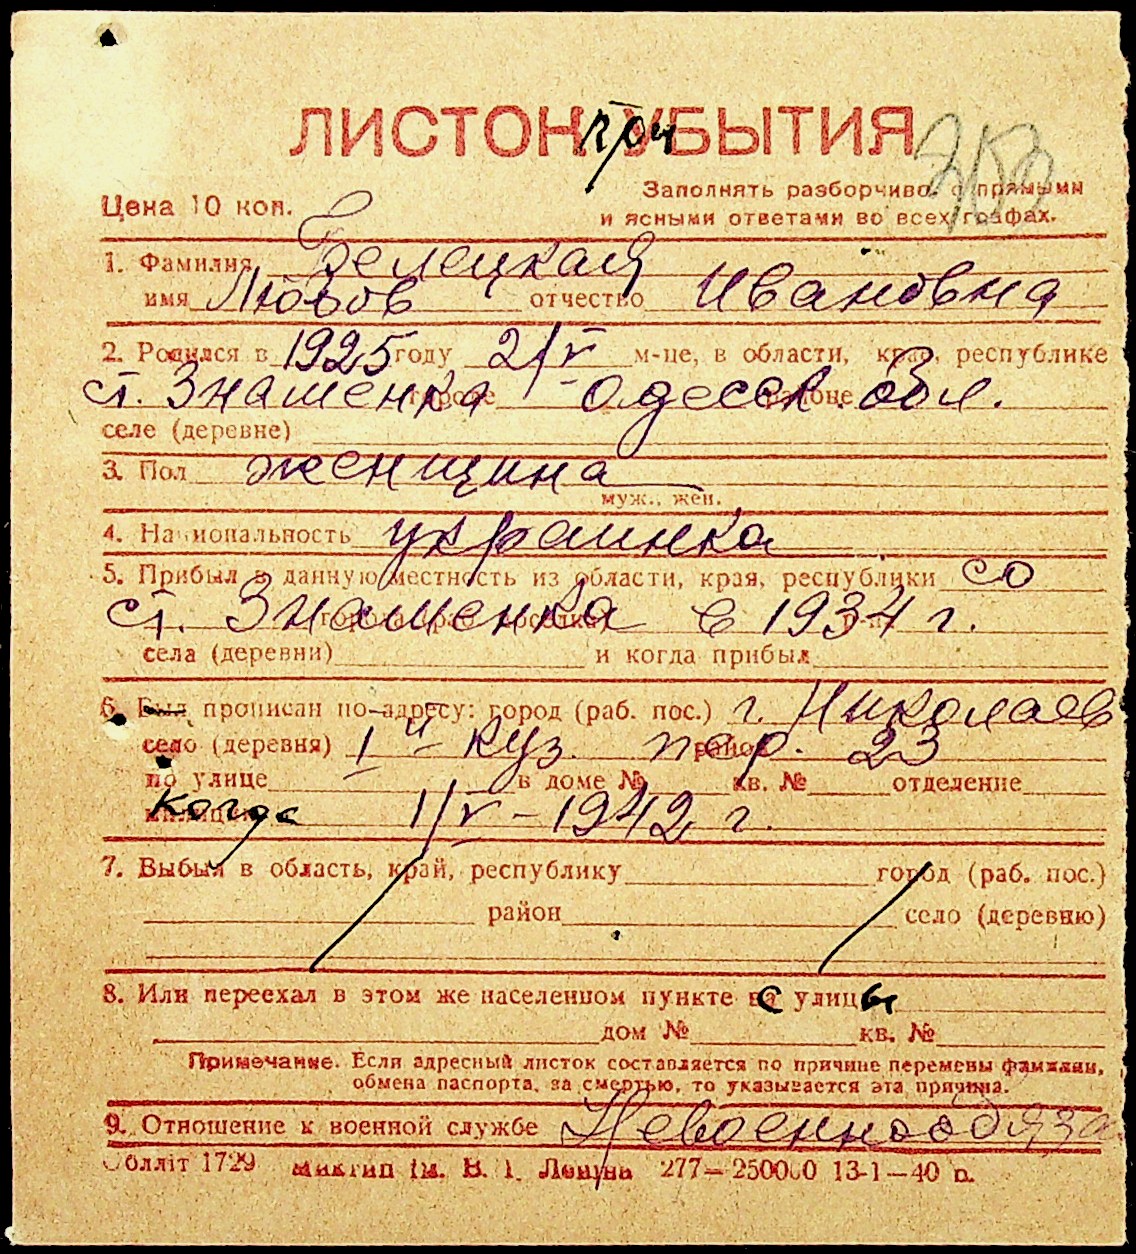 ЛИСТОК при УБЫТИЯ
353
Цена 10 коп.
Заполнять разборчиво, с прямыми
и ясными ответами во всех графах.
1. Фамилия Белецкая
имя Любовь отчество Ивановна
2. Родился в 1925 году 21/V м-це, в области, крае, республике
ст. Знаменка городе Одесск. районе обл.
селе (деревне)
3. Пол женщина
муж., жен.
4. Национальность украинка
5. Прибыл в данную местность из области, края, республики со
ст. Знаменка в 1934 г.
села (деревни) и когда прибыл
6. Был прописан по адресу: город (раб. пос.) г. Николаев
село (деревня) 1й куз. пер. район 23
по улице в доме № кв. № отделение
милиции когда 1/V – 1942 г.
7. Выбыл в область, край, республику город (раб. пос.)
район село (деревню)
8. Или переехал в этом же населенном пункте с улицы
дом № кв. №
Примечание. Если адресный листок составляется по причине перемены фамилии,
обмена паспорта, за смертью, то указывается эта причина.
9. Отношение к военной службе Невоеннообяза
Обллiт 1729 Миктип iм. В. I. Ленiна 277—250000 13-1—40 р.